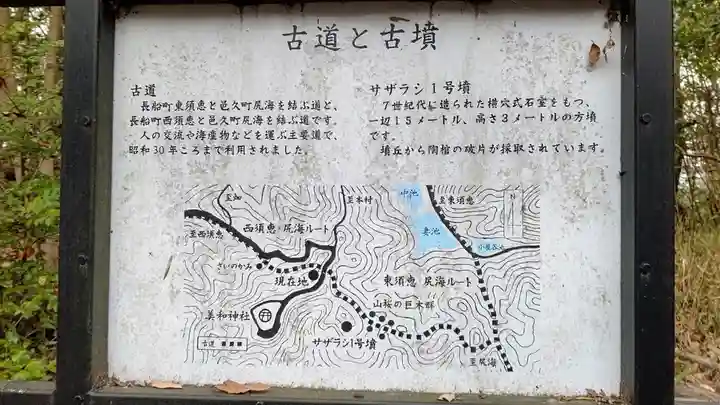 古道と古墳
古道
長船町東須恵と邑久町尻海を結ぶ道と、
長船町西須恵と邑久町尻海を結ぶ道です。
人の交流や海産物などを運ぶ主要道で、
昭和30年ころまで利用されました。
サザラシ1号墳
7世紀代に造られた横穴式石室をもつ、
一辺15メートル、高さ3メートルの方墳
です。
墳丘から陶棺の破片が採取されています。
至畑
至本村
中池
至東須恵
至西須恵
西須恵・尻海ルート
妻池
小屋谷池
さいのかみ
現在地
東須恵 尻海ルート
美和神社
山桜の巨木群
サザラシ1号墳
古道
至尻海